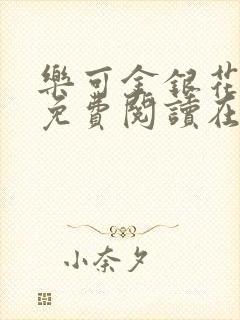 樂可金銀花
免費閱讀在
小奈夕